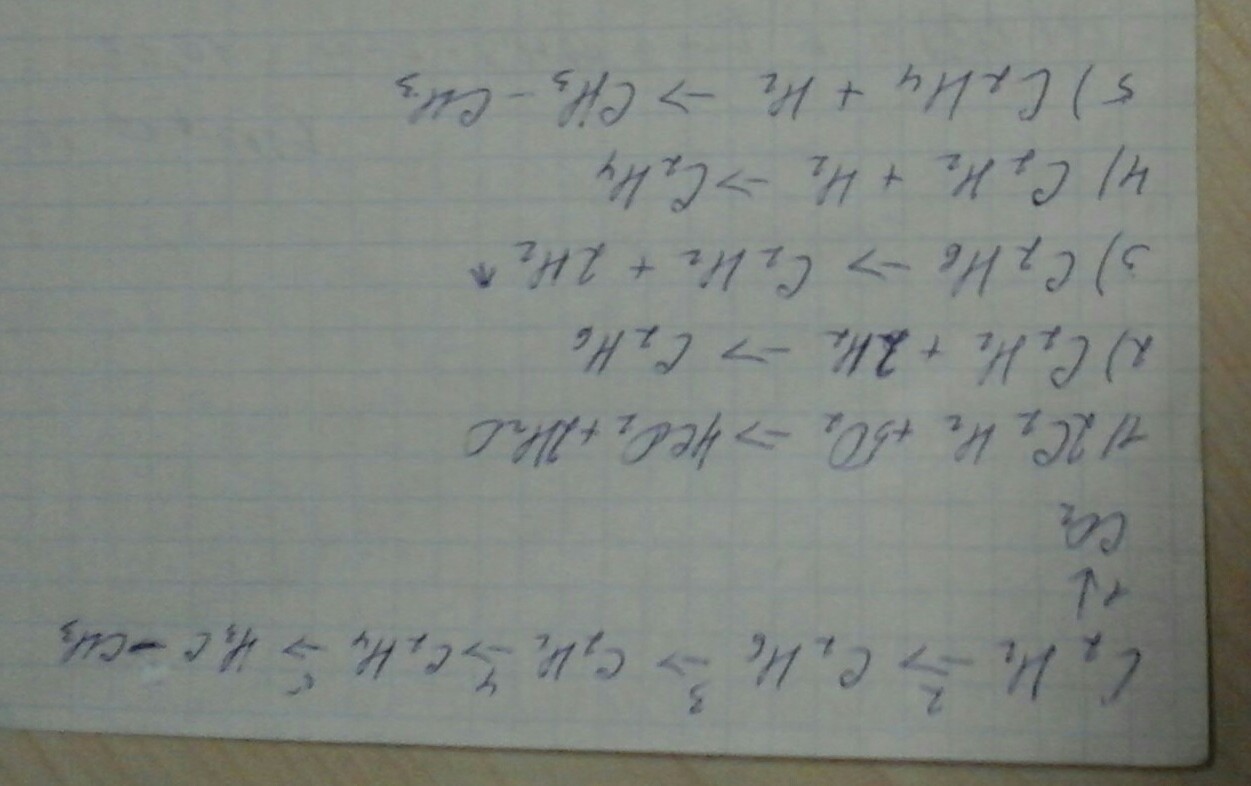 C₂H₂ →² C₂H₆ →³ C₂H₂ →⁴ C₂H₄ →⁵ H₃C – CH₃
1↓
CO₂
1) 2C₂H₂ + 5O₂ → 4CO₂ + 2H₂O
2) C₂H₂ + 2H₂ → C₂H₆
3) C₂H₆ → C₂H₂ + 2H₂ ↑
4) C₂H₂ + H₂ → C₂H₄
5) C₂H₄ + H₂ → CH₃ – CH₃